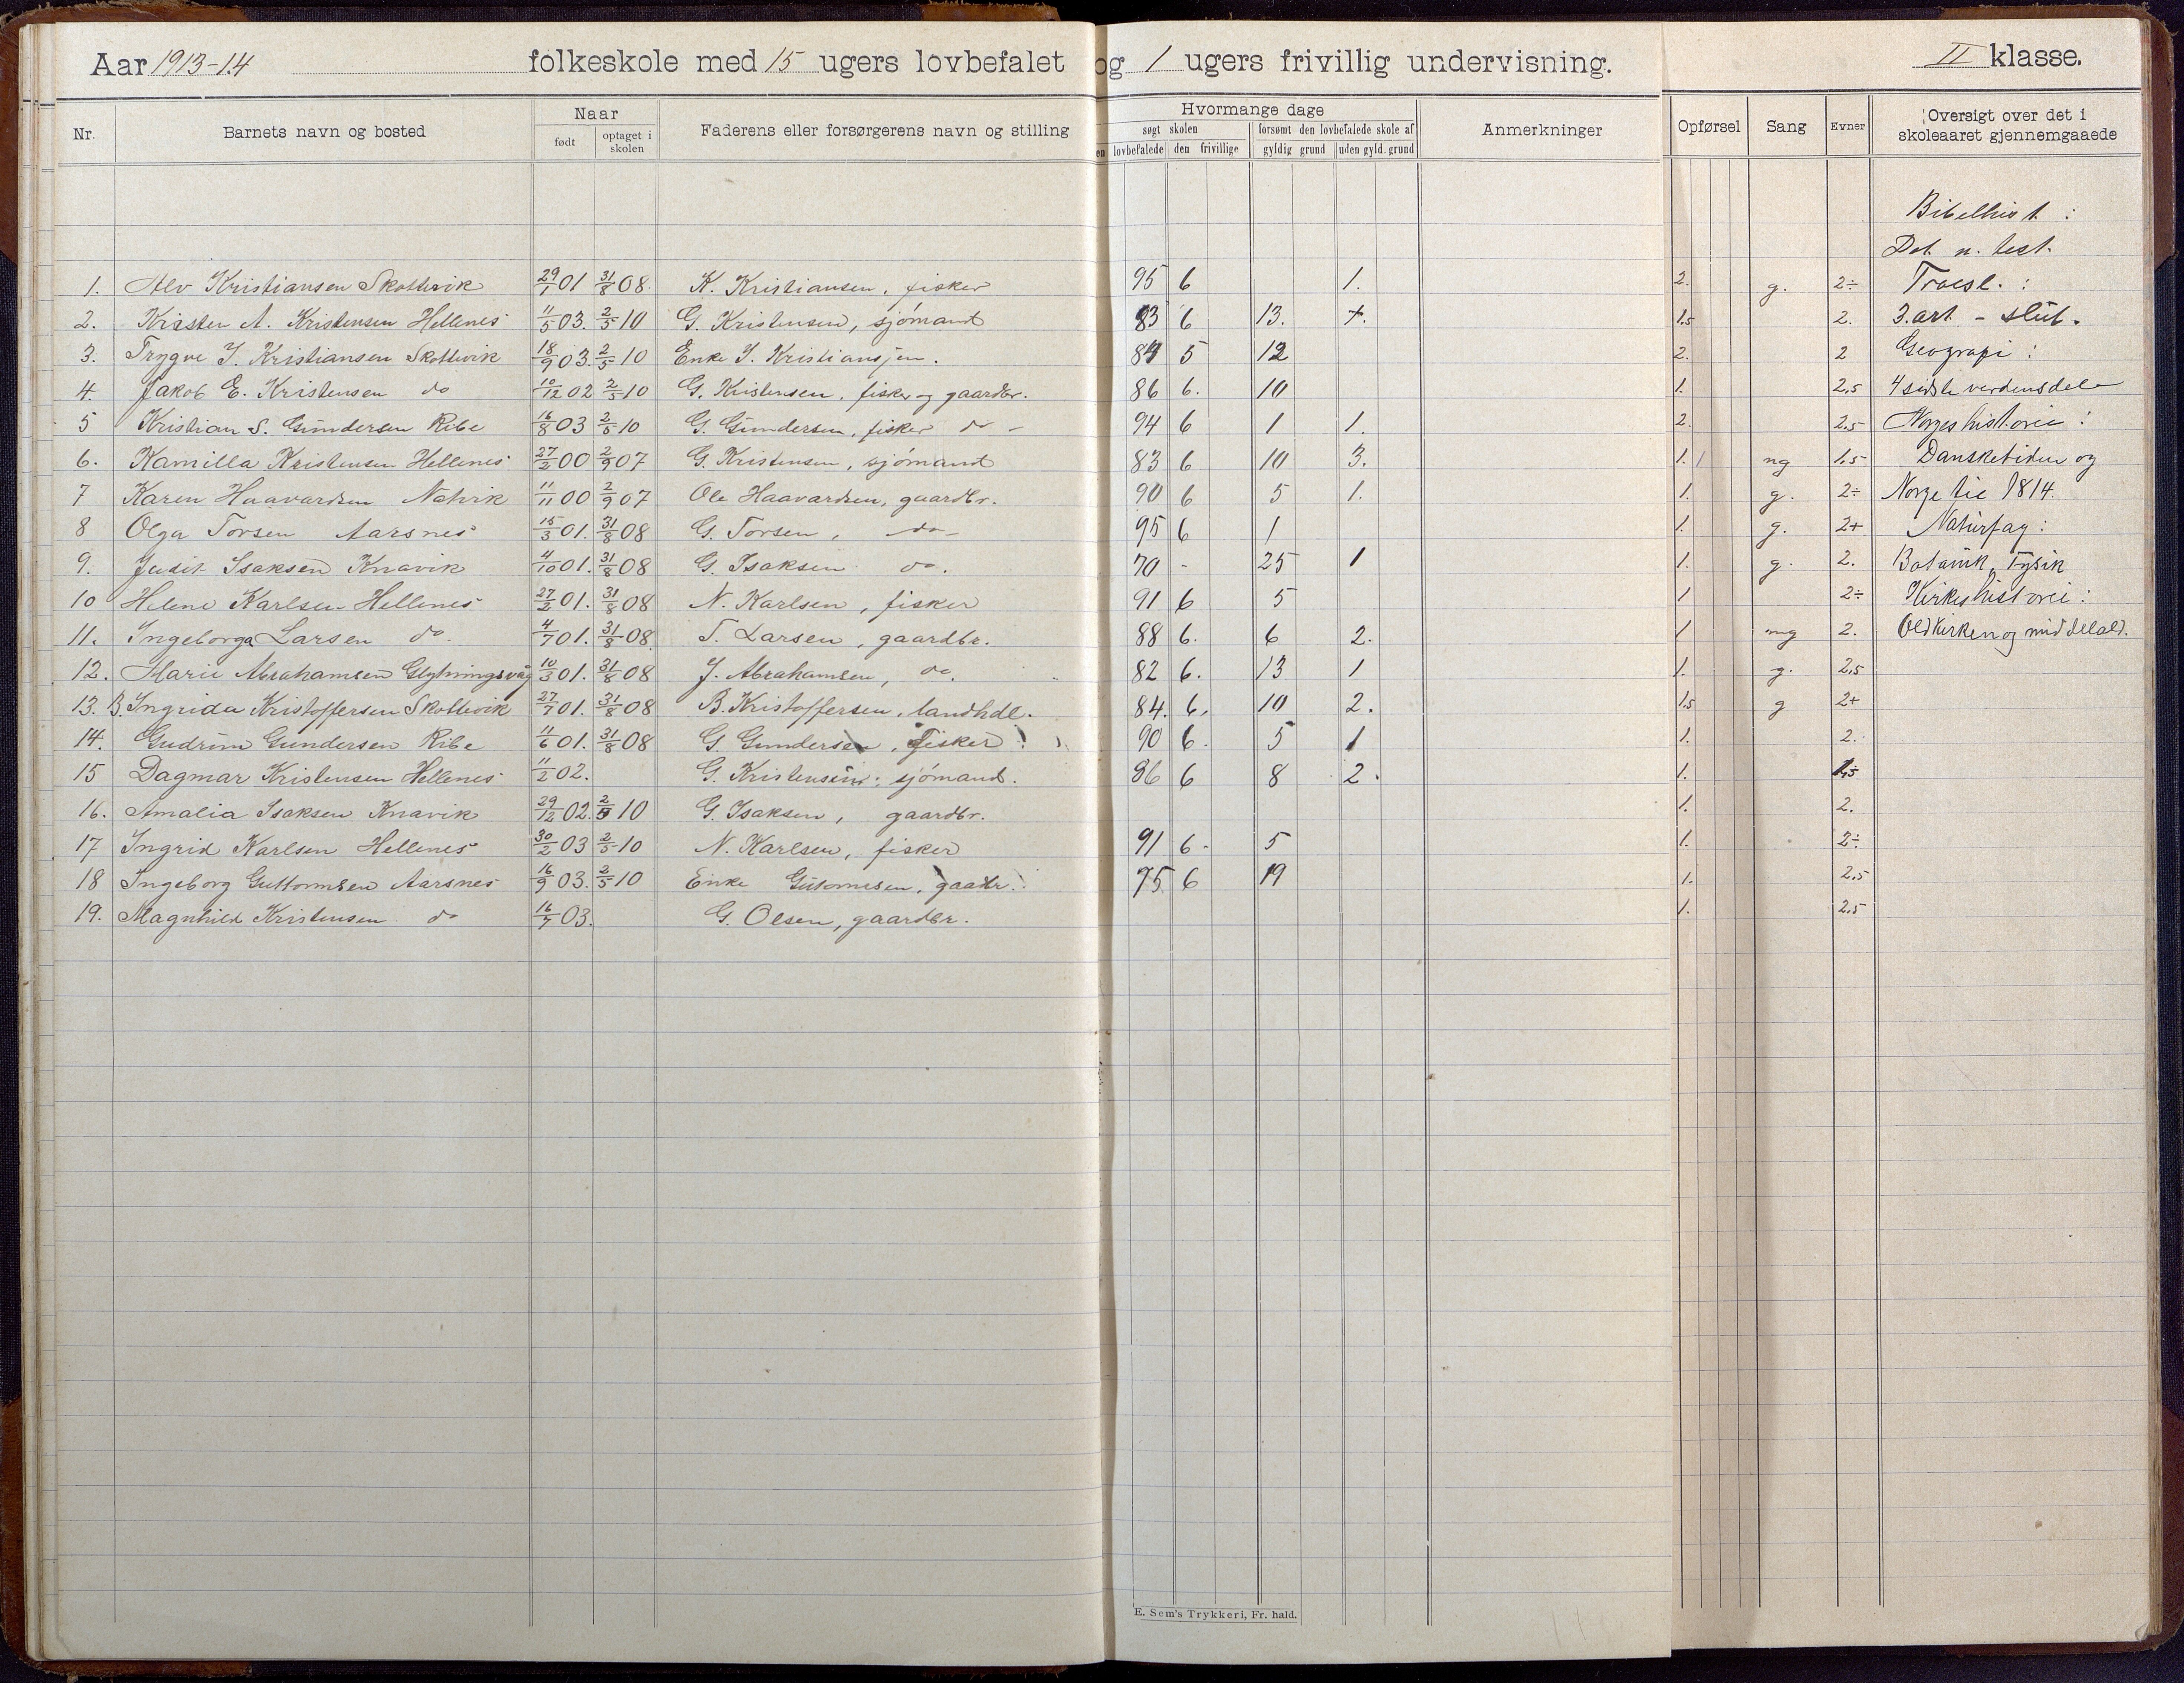 Aar 1913-14 folkeskole med 15 ugers lovbefalet og 1 ugers frivillig undervisning. II klasse.
Nr. Barnets navn og bosted Naar født optaget i skolen Faderens eller forsørgerens navn og stilling Hvormange dage søgt skolen lovbefalede den frivillige forsømt den lovbefalede skole af gyldig grund uden gyld. grund Anmerkninger Opførsel Sang Evner Oversigt over det i skoleaaret gjennemgaaede
Bibelhist :
Det n. test.
1. Alv Kristiansen Skottevik 29/1 01 31/8 08. K. Kristiansen, fisker 95 6 1. 2. g. 2÷ Troesl. :
2. Krister A. Kristensen Hellenes 11/5 03. 2/5 10 G. Kristensen, sjömand 83 6 13. 1.5 2. 3. art. - slut.
3. Trygve J. Kristiansen Skottevik 18/9 03. 2/5 10 Enke J. Kristiansjen. 84 5 12 2. 2 Geografi :
4. Jakob E. Kristensen do 10/12 02 2/5 10 G. Kristensen, fisker og gaardbr. 86 6. 10 1. 2.5 4 sidste verdensdele
5 Kristian S. Gundersen Ribe 16/8 03 2/5 10 G. Gundersen, fisker do - 94 6 1 1. 2. 2.5 Norges historie :
6. Kamilla Kristensen Hellenes 27/2 00 2/9 07 G. Kristensen, sjömand 83 6 10 3. 1. ng 1.5 Dansketiden og
7 Karen Haavardsen Natvik 11/11 00 2/9 07 Ole Haavardsen, gaardbr. 90 6 5 1. 1. g. 2÷ Norge til 1814.
8 Olga Torsen Aarsnes 15/3 01. 31/8 08 G. Torsen, do- 95 6 1 1. g. 2+ Naturfag :
9. Judit Isaksen Knavik 4/10 01. 31/8 08 G. Isaksen do. 70 - 25 1 1. g. 2. Botanik, Fysik
10 Helene Karlsen Hellenes 27/2 01. 31/8 08 N. Karlsen, fisker 91 6 5 1 2÷ Kirkeshistorie :
11. Ingeborga Larsen do. 4/7 01. 31/8 08. T. Larsen, gaardbr. 88 6. 6 2. 1 mg 2. Oldkirken og middelald.
12. Marie Abrahamsen 10/3 01. 31/8 08 J. Abrahamsen, do. 82 6. 13 1 1. g. 2.5
13. B. Ingrida Kristoffersen Skottevik 27/7 01. 31/8 08 B. Kristoffersen, landhdl. 84. 6. 10 2. 1.5 g 2+
14. Gudrun Gundersen Ribe 11/6 01. 31/8 08 G. Gundersen, fisker 90 6. 5 1 1. 2.
15 Dagmar Kristensen Hellenes 11/2 02. G. Kristensen, sjömand. 86 6 8 2. 1. 1.5
16. Amalia Isaksen Knavik 29/12 02. 2/5 10 G. Isaksen, gaardbr. 1. 2.
17 Ingrid Karlsen Hellenes 30/2 03 2/5 10 N. Karlsen, fisker 91 6. 5 1. 2÷
18 Ingeborg Guttormsen Aarsnes 16/9 03. 2/5 10 Enke Gutormsen, gaardbr. 75 6 19 1. 2.5
19. Magnhild Kristensen do 16/7 03. G. Olsen, gaardbr. 1. 2.5
E. Sem's Trykkeri, Fr. hald.